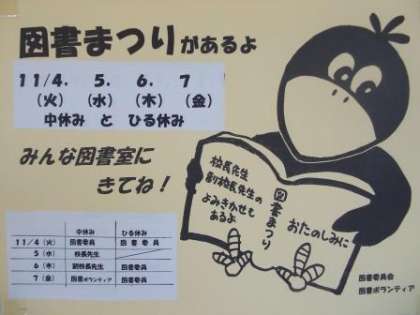 図書まつりがあるよ
11/4. 5. 6. 7
(火) (水) (木) (金)
中休み と ひる休み
みんな図書室に
きてね!
校長先生
副校長先生の
よみきかせも
あるよ
図書まつり
おたのしみに
中休み ひる休み
11/4 (火) 図書委員 図書委員
5 (水) 校長先生
6 (木) 副校長先生 図書委員
7 (金) 図書ボランティア 図書委員
図書委員会
図書ボランティア